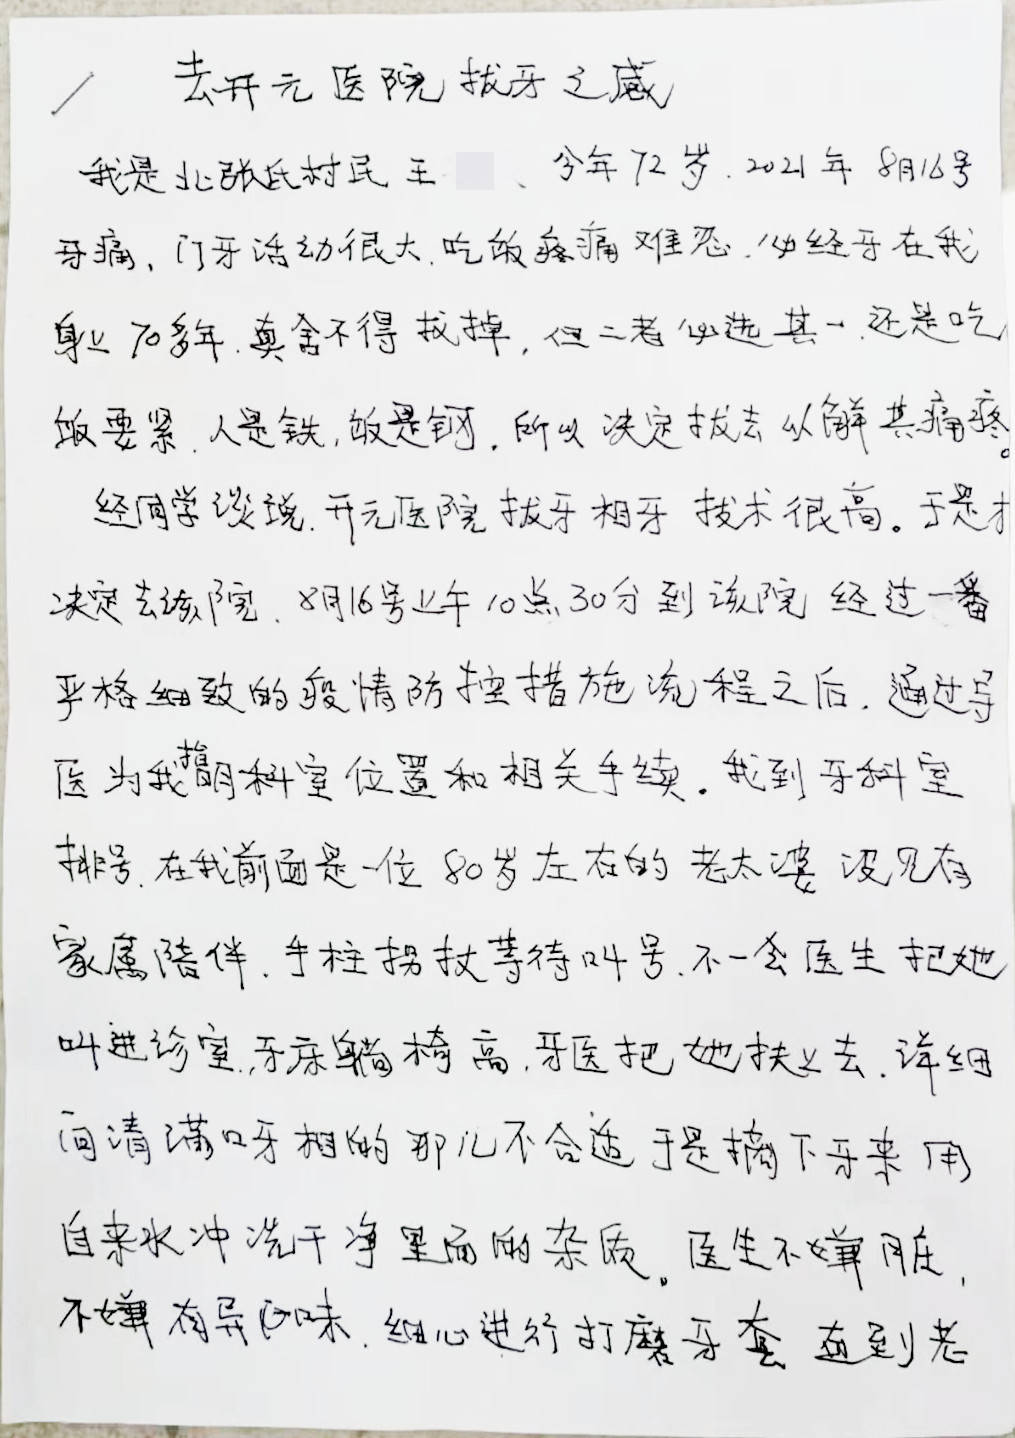 去开元医院拔牙之感
我是北张氏村民王 、今年72岁.2021年8月16号
牙痛、门牙活动很大.吃饭疼痛难忍.必经牙在我
身上70多年.真舍不得拔掉,但二者必选其一.还是吃
饭要紧.人是铁,饭是钢.所以决定拔去从解其痛疼。
经同学谈说.开元医院拔牙相牙技术很高。于是才
决定去该院.8月16号上午10点30分到该院经过一番
严格细致的疫情防控措施流程之后.通过导
医为我指明科室位置和相关手续.我到牙科室
排号.在我前面是一位80岁左右的老太婆没见有
家属陪伴.手柱拐杖等待叫号.不一会医生把她
叫进诊室.,牙床躺椅高.牙医把她扶上去.详细
问清满口牙相的那儿不合适于是摘下牙来用
自来水冲洗干净里面的杂质。医生不嫌脏,
不嫌有异味.细心进行打磨牙套直到老